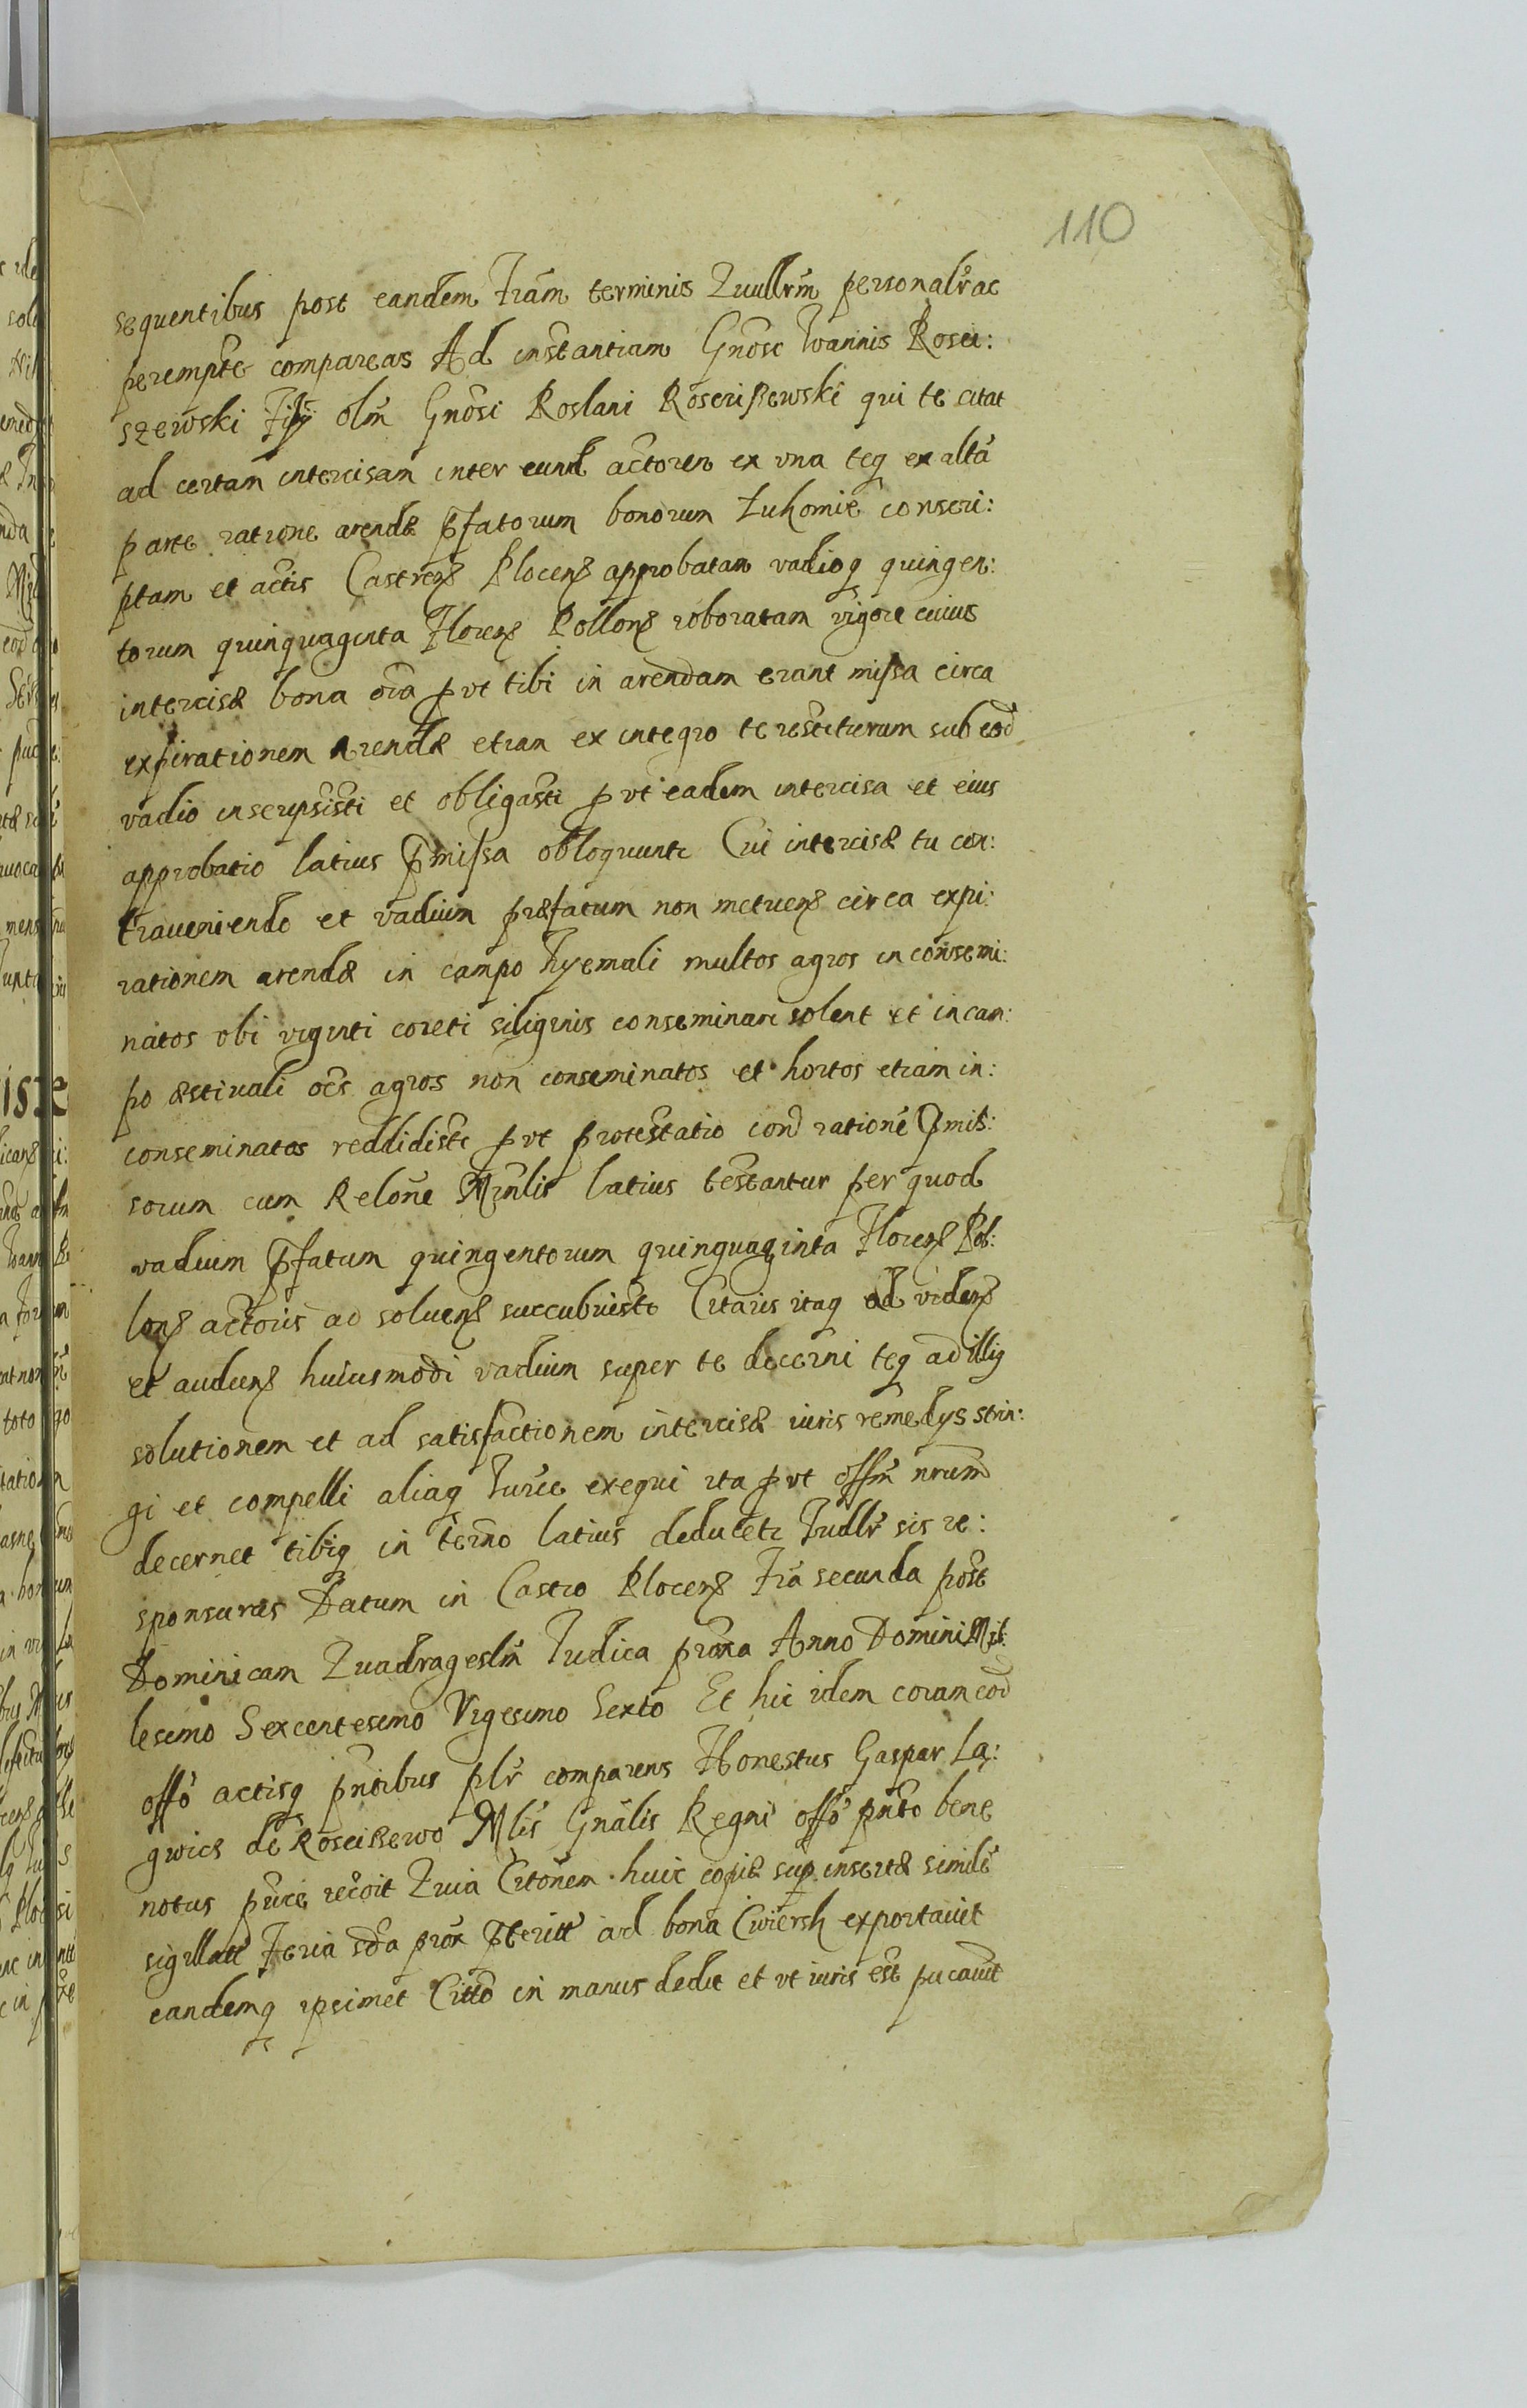 110
sequentibus post eandem Fram terminis Zuullrm personalr ac
perempte compareas Ad instantiam Gnosi Ioannis Rosci:
szewski Filij olm Gnosi Roslani Rosciszewski qui te citat
ad certam intercisam inter eund actorem ex una teq ex altâ
parte ratione arendæ pfatorum bonorum Łukomie conscri:
ptam et actis Castrens Plocens approbatam vadioq quingen:
torum quinquaginta Floren Pollon roboratam vigore cuius
intercisæ bona oia put tibi in arendam erant missa circa
expirationem arendæ etiam ex integro te restiturum sub eod
vadio inscripsisti et obligasti put eadem intercisa et eius
approbatio latius pmissa obloquuntr Cui intercisæ tu con:
traueniendo et vadium præfatum non metuens circa expi:
rationem arendæ in campo hyemali multos agros inconsemi:
natos obi viginti coreti siliginis conseminari solent et in cam:
po æstiuali oes agros non conseminatos et hortos etiam in:
conseminatos reddidisti put protestatio cond ratione pmis:
sorum cum Relone Mnlis latius testantur per quod
vadium pfatum quingentorum quinquaginta Floren Pol:
lon actoris ad soluen succubuisti Citaris itaq ad viden
et audien huiusmodi vadium super te decerni teq ad illig
solutionem et ad satisfactionem intercisæ iuris remedys strin:
gi et compelli aliaq Iurce exequi ita put offm nrum
decernet tibiq in termo latius deducetr Iudlr sis re:
sponsurus Datum in Castro Plocen Fra secunda post
Dominicam Quadrageslm Iudica proxa Anno Domini Mil:
lesimo Sexcentesimo Vigesimo Sexto Et hic idem coram eod
offo actisq pntibus plr comparens Honestus Gaspar La:
gwics de Rosciszewo Mlis Gnalis Regni offo pnto bene
notus recoit Citonem huic copiæ sup insertæ simile
sigillatt Feria sda prox pteritt ad bona Cwiersk exportauit
eandemq ipsimet Citto in manus dedit et ut iuris est pucauit